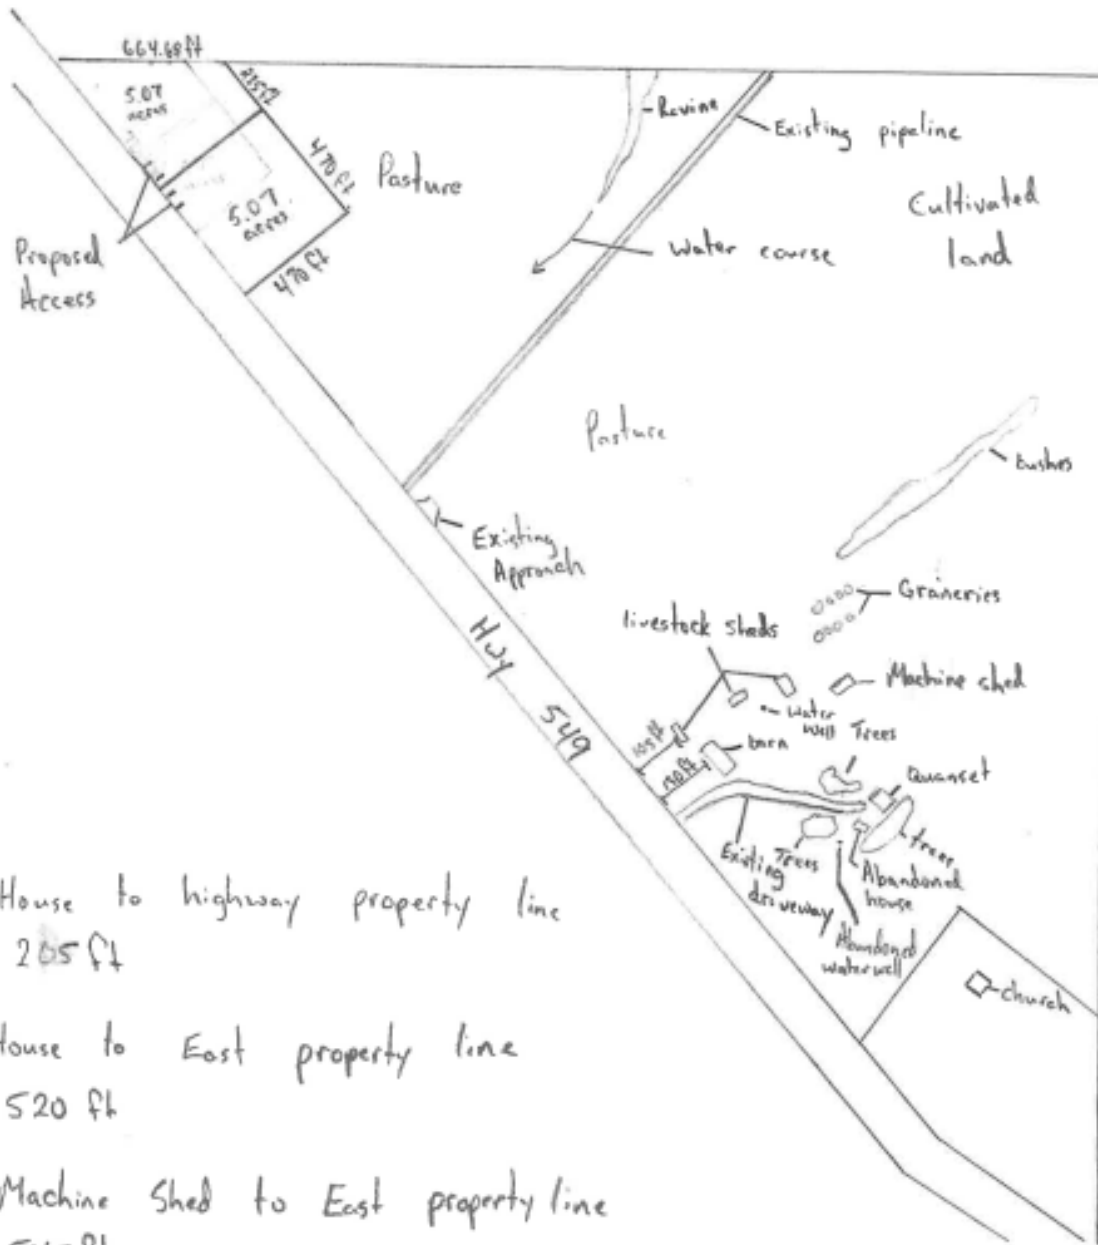 664.68ft
5.07
acres
235ft
470ft
Pasture
5.07
acres
470ft
Proposed
Access
Ravine
Existing pipeline
Cultivated
land
Water course
Pasture
Bushes
Existing
Approach
Graneries
livestock sheds
Machine shed
Hwy
549
water
well
Trees
105ft
barn
130ft
Quanset
trees
Existing
driveway
Trees
Abandoned
house
Abandoned
water well
church
House to highway property line
205 ft
House to East property line
520 ft
Machine Shed to East property line